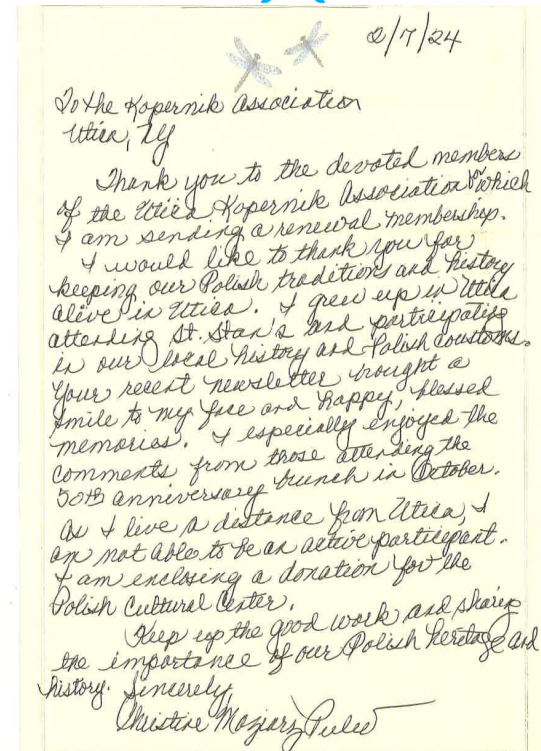 2/7/24
To the Kopernik Association
Utica, NY
Thank you to the devoted members
of the Utica Kopernik Association for which
I am sending a renewal membership.
I would like to thank you for
keeping our Polish traditions and history
alive in Utica. I grew up in Utica
attending St. Stan's and participating
in our local history and Polish customs.
Your recent newsletter brought a
smile to my face and happy, blessed
memories. I especially enjoyed the
comments from those attending the
50th anniversary brunch in October.
As I live a distance from Utica, I
am not able to be an active participant.
I am enclosing a donation for the
Polish Cultural Center.
Keep up the good work and sharing
the importance of our Polish heritage and
history. Sincerely,
Christine Maziarz